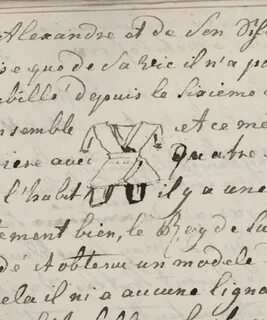 Alexandre et de Son
se que de Sa vie il n'a po
billé depuis le Sixieme
nsemble et ce me
riere avec quatre
l'habit il y a une
tement bien, le Roy de Su
dé et obtenu un modele
ela il n'i a aucune ligna